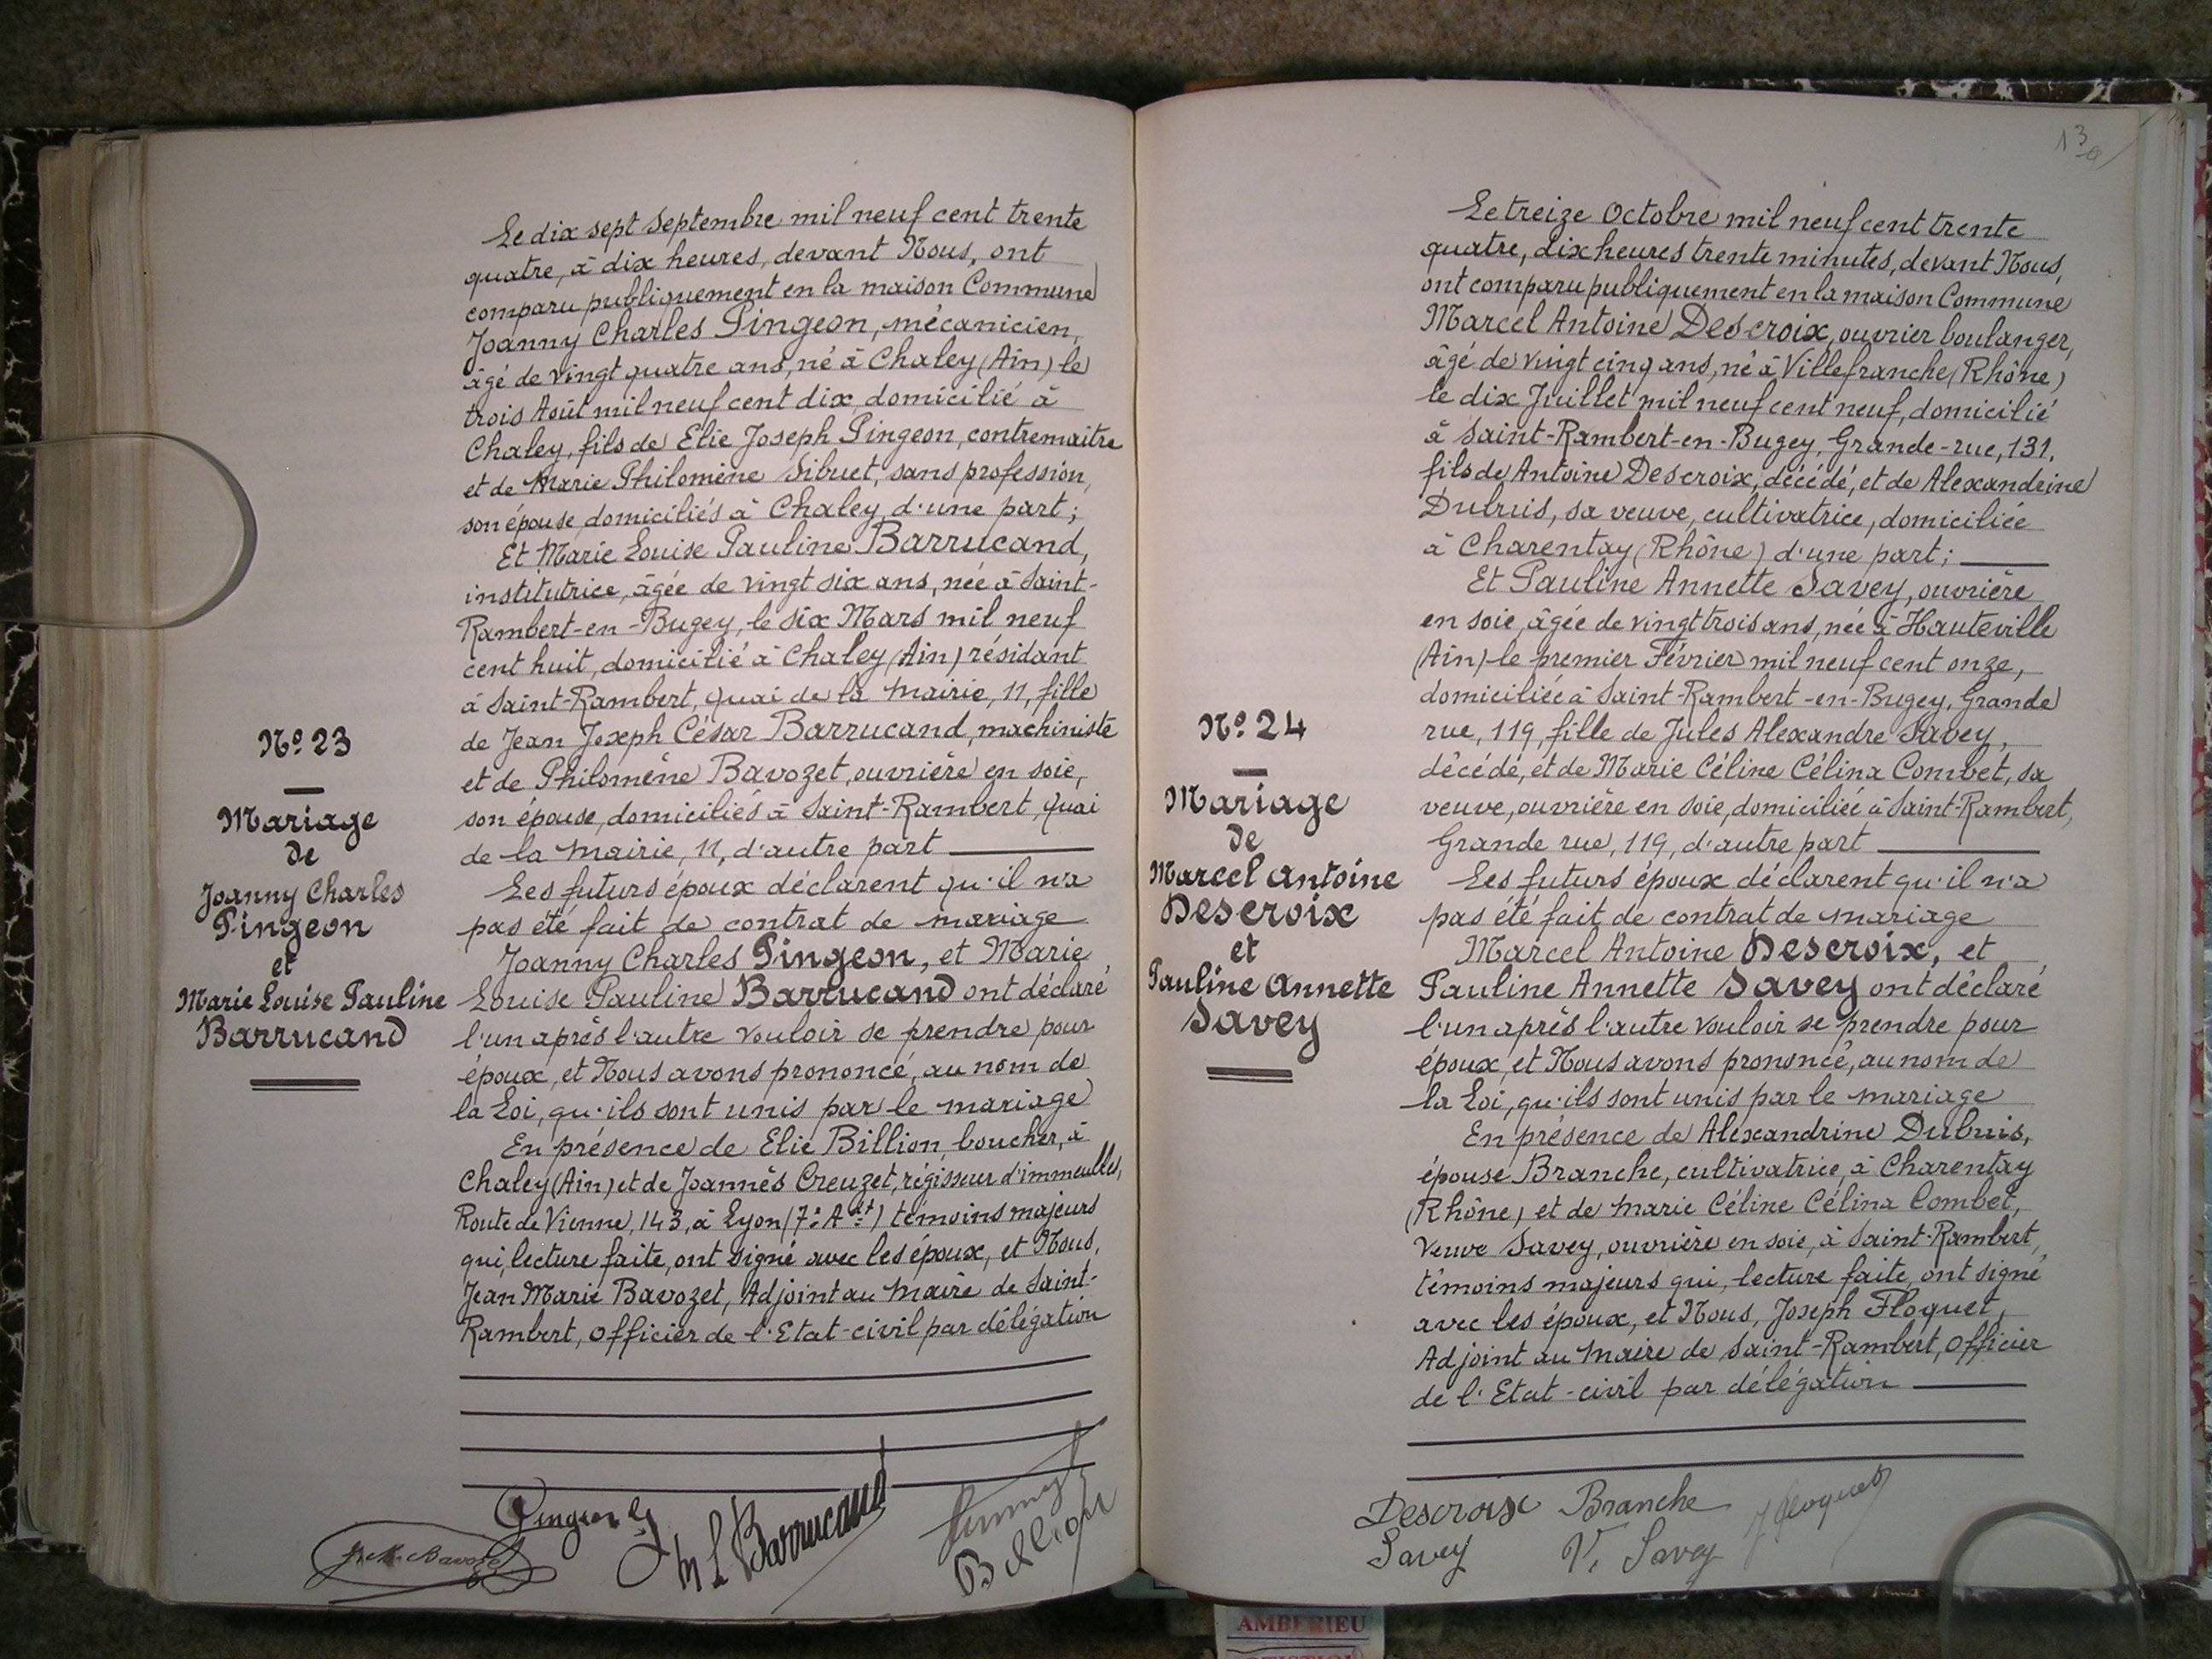 Le dix sept Septembre mil neuf cent trente
quatre, à dix heures, devant Nous, ont
comparu publiquement en la maison Commune
Joanny Charles Pingeon, mécanicien,
âgé de vingt quatre ans, né à Chaley (Ain) le
trois Août mil neuf cent dix, domicilié à
Chaley, fils de Elie Joseph Pingeon, contremaitre
et de Marie Philomène Sibuet, sans profession,
son épouse, domiciliés à Chaley, d'une part;
Et Marie Louise Pauline Barrucand,
institutrice, âgée de vingt six ans, née à Saint-
Rambert-en-Bugey, le six Mars mil neuf
cent huit, domicilié à Chaley (Ain) résidant
à Saint-Rambert, quai de la Mairie, 11, fille
de Jean Joseph César Barrucand, machiniste
et de Philomène Bavozet, ouvrière en soie,
son épouse, domiciliés à Saint-Rambert, quai
de la Mairie, 11, d'autre part
Les futurs époux déclarent qu'il n'a
pas été fait de contrat de mariage
Joanny Charles Pingeon, et Marie
Louise Pauline Barrucand ont déclaré
l'un après l'autre vouloir se prendre pour
époux, et Nous avons prononcé, au nom de
la Loi, qu'ils sont unis par le mariage
En présence de Elie Billion, boucher, à
Chaley (Ain) et de Joannès Creuzet, régisseur d'immeubles,
Route de Vienne, 143, à Lyon (7e Adt) témoins majeurs
qui, lecture faite, ont signé avec les époux, et Nous,
Jean Marie Bavozet, Adjoint au Maire de Saint-
Rambert, Officier de l'Etat-civil par délégation
No 23
Mariage
de
Joanny Charles
Pingeon
et
Marie Louise Pauline
Barrucand
Pingeon
M L Barrucand
J. M. Bavozet
Billion
13
Le treize Octobre mil neuf cent trente
quatre, dix heures trente minutes, devant Nous,
ont comparu publiquement en la maison Commune
Marcel Antoine Descroix, ouvrier boulanger,
âgé de vingt cinq ans, né à Villefranche (Rhône)
le dix Juillet mil neuf cent neuf, domicilié
à Saint-Rambert-en-Bugey, Grande-rue, 131,
fils de Antoine Descroix, décédé, et de Alexandrine
Dubuis, sa veuve, cultivatrice, domiciliée
à Charentay (Rhône) d'une part;
Et Pauline Annette Savey, ouvrière
en soie, âgée de vingt trois ans, née à Hauteville
(Ain) le premier Février mil neuf cent onze,
domiciliée à Saint-Rambert-en-Bugey, Grande
rue, 119, fille de Jules Alexandre Savey,
décédé, et de Marie Céline Célina Combet, sa
veuve, ouvrière en soie, domiciliée à Saint-Rambert,
Grande rue, 119, d'autre part
Les futurs époux déclarent qu'il n'a
pas été fait de contrat de mariage
Marcel Antoine Descroix, et
Pauline Annette Savey ont déclaré
l'un après l'autre vouloir se prendre pour
époux, et Nous avons prononcé, au nom de
la Loi, qu'ils sont unis par le mariage
En présence de Alexandrine Dubuis,
épouse Branche, cultivatrice, à Charentay
(Rhône) et de Marie Céline Célina Combet,
Veuve Savey, ouvrière en soie, à Saint-Rambert,
témoins majeurs qui, lecture faite, ont signé
avec les époux, et Nous, Joseph Floquet,
Adjoint au Maire de Saint-Rambert, Officier
de l'Etat-civil par délégation
No 24
Mariage
de
Marcel Antoine
Descroix
et
Pauline Annette
Savey
Descroix Branche J Floquet
Savey V. Savey
AMBERIEU